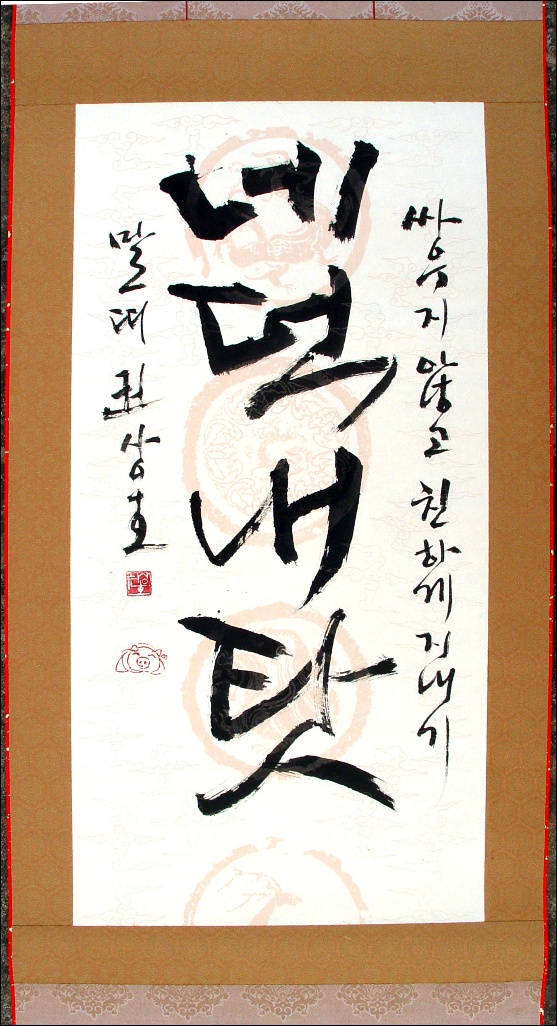 싸우지 않고 친하게 지내기
네 덕 내 탓
권상호